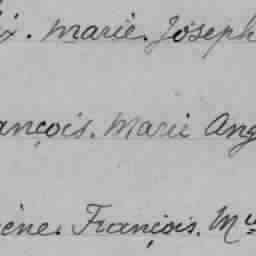 ix. Marie. Joseph
ançois. Marie Ang
ène. François. M